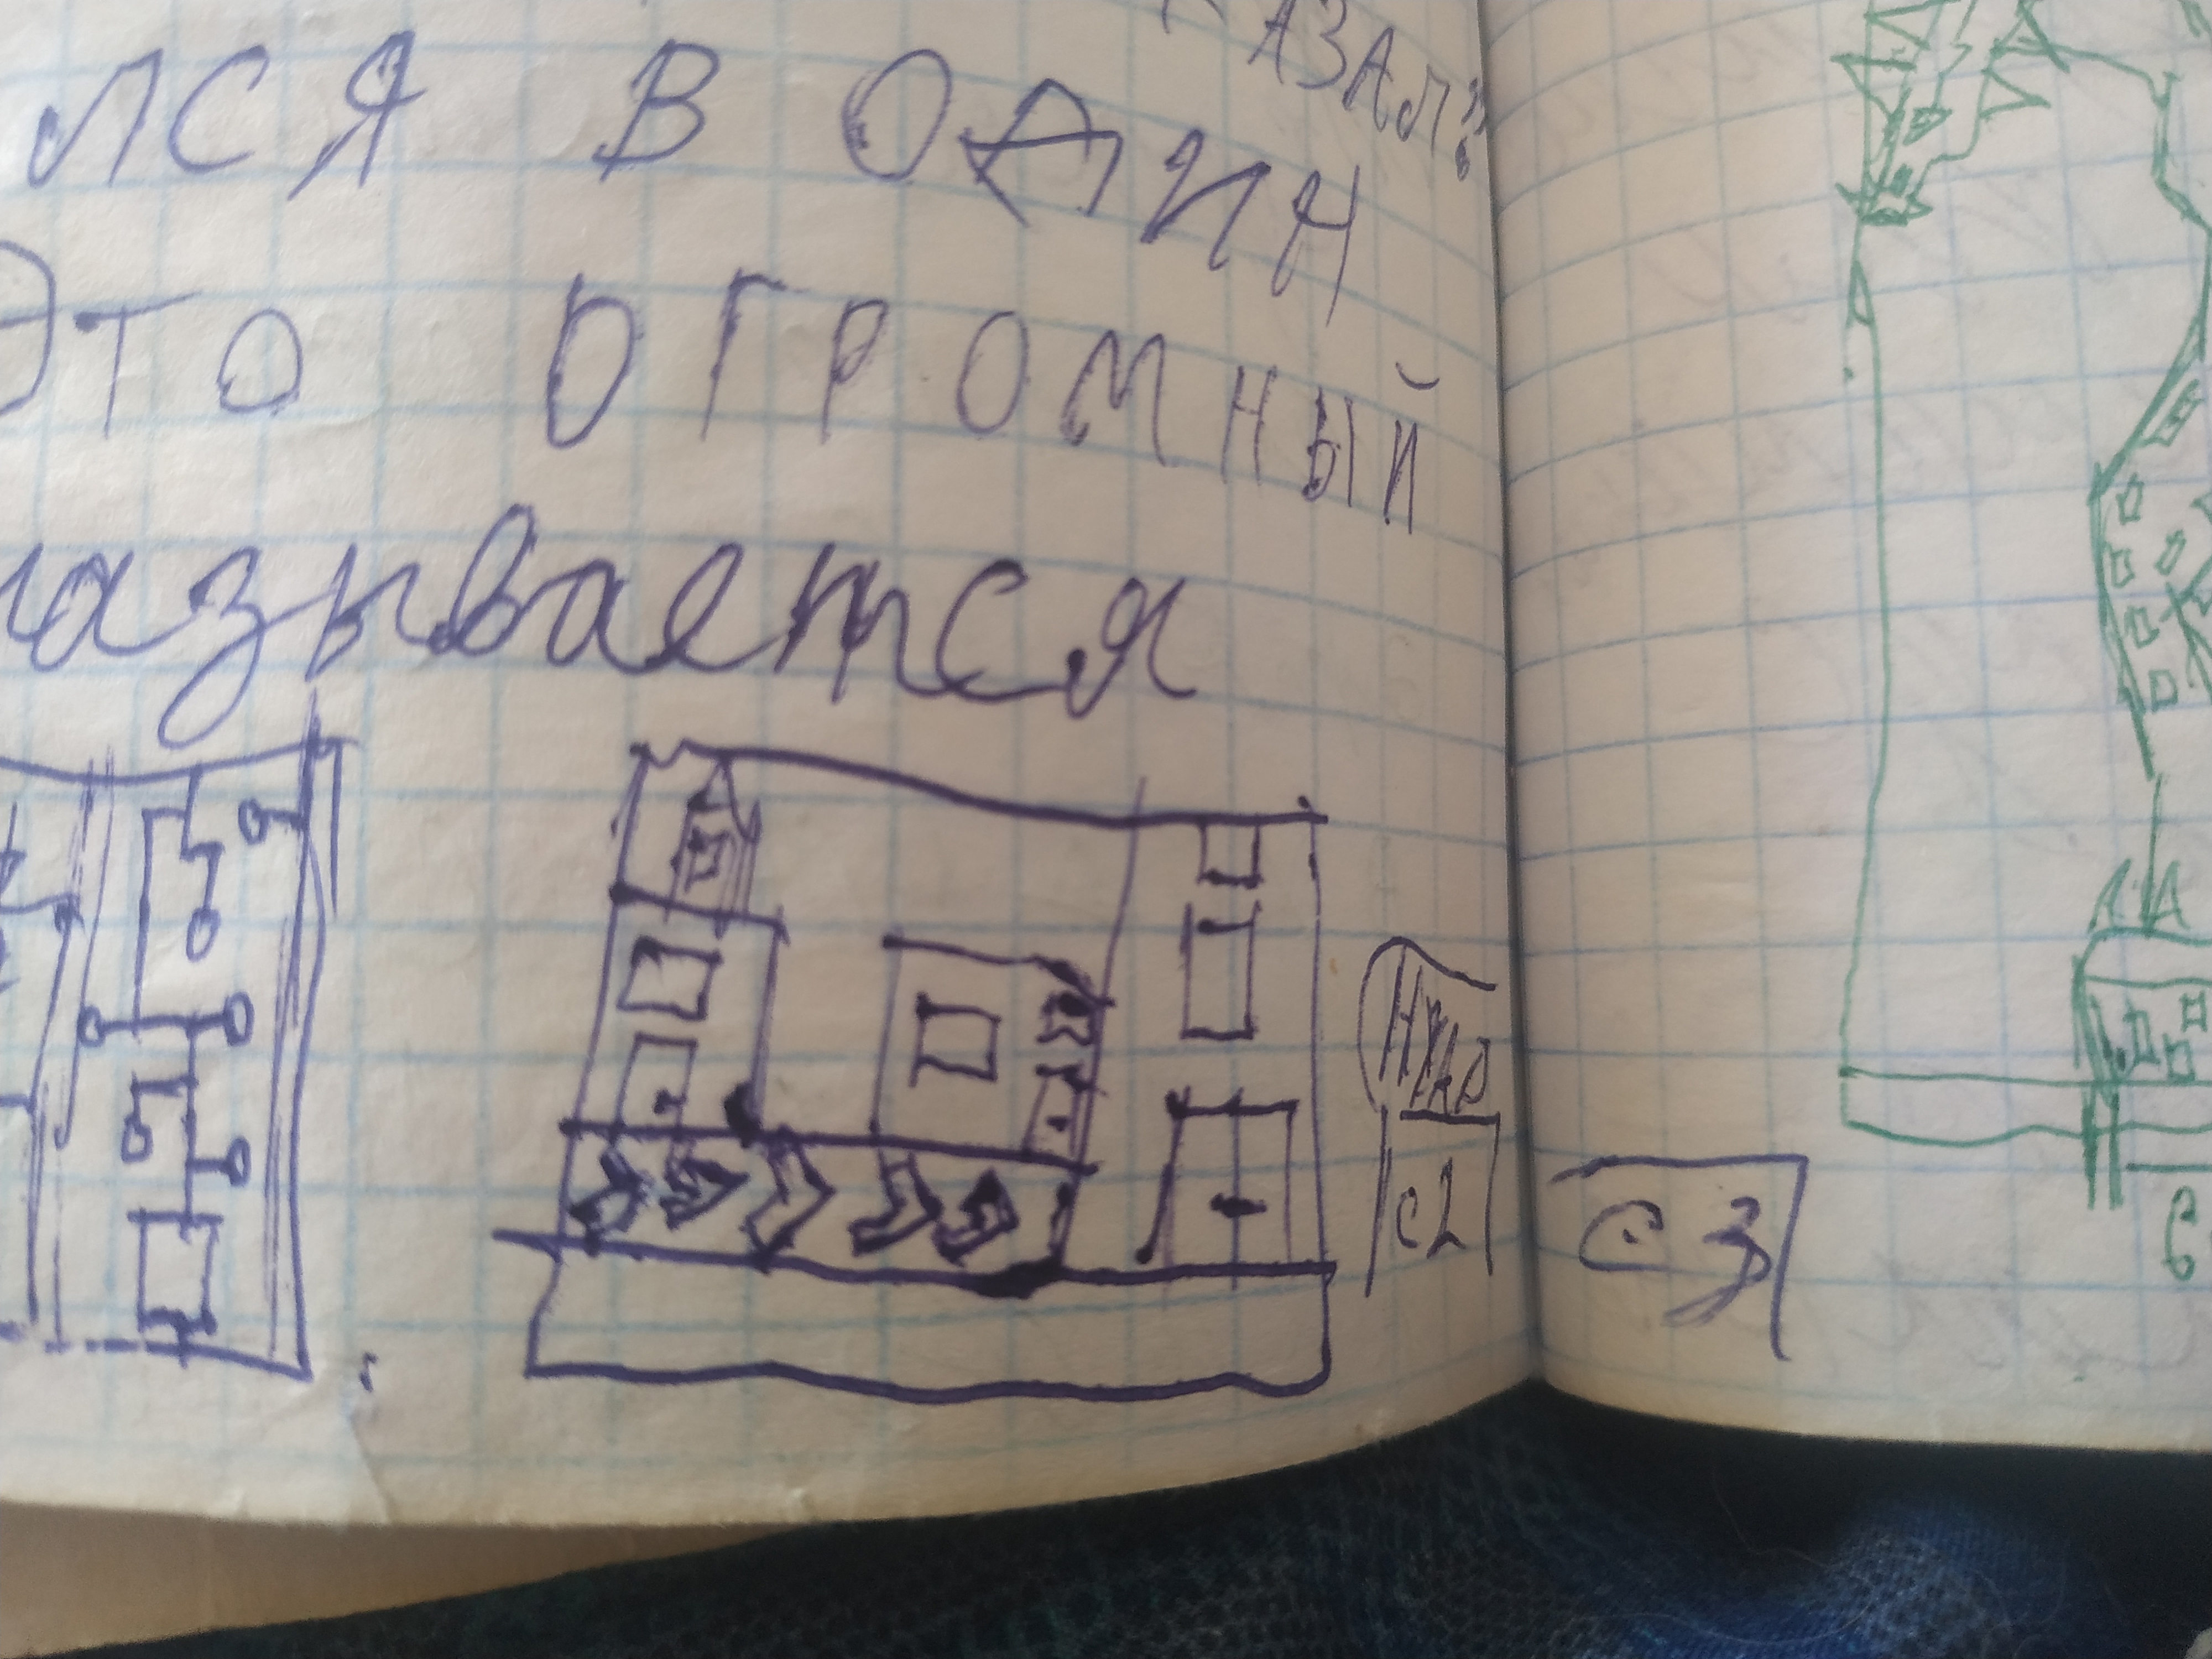 АЗАЛ:
ЛСЯ В ОДИН
ЭТО ОГРОМНЫЙ
называется
с2
с3
6